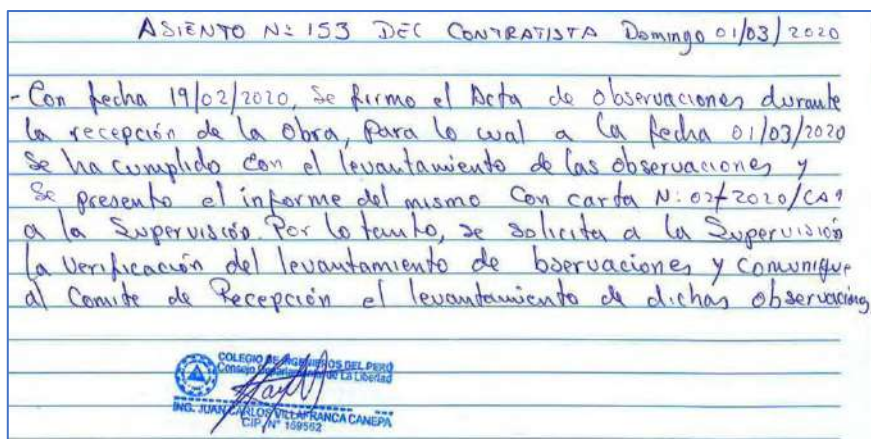 ASIENTO Nº 153 DEL CONTRATISTA Domingo 01/03/2020
- Con fecha 19/02/2020, Se firmo el Acta de observaciones durante
la recepción de la Obra, para lo cual a la fecha 01/03/2020
Se ha cumplido con el levantamiento de las observaciones y
Se presento el informe del mismo Con carta Nº
a la Supervisión. Por lo tanto, se solicita a la Supervisión
la verificación del levantamiento de bservaciones y comunique
al Comite de Recepción el levantamiento de dichas observaciones
COLEGIO DE INGENIEROS DEL PERÚ
Consejo Departamental de La Libertad
ING. JUAN CARLOS VILLAFRANCA CANEPA
CIP. N° 169562